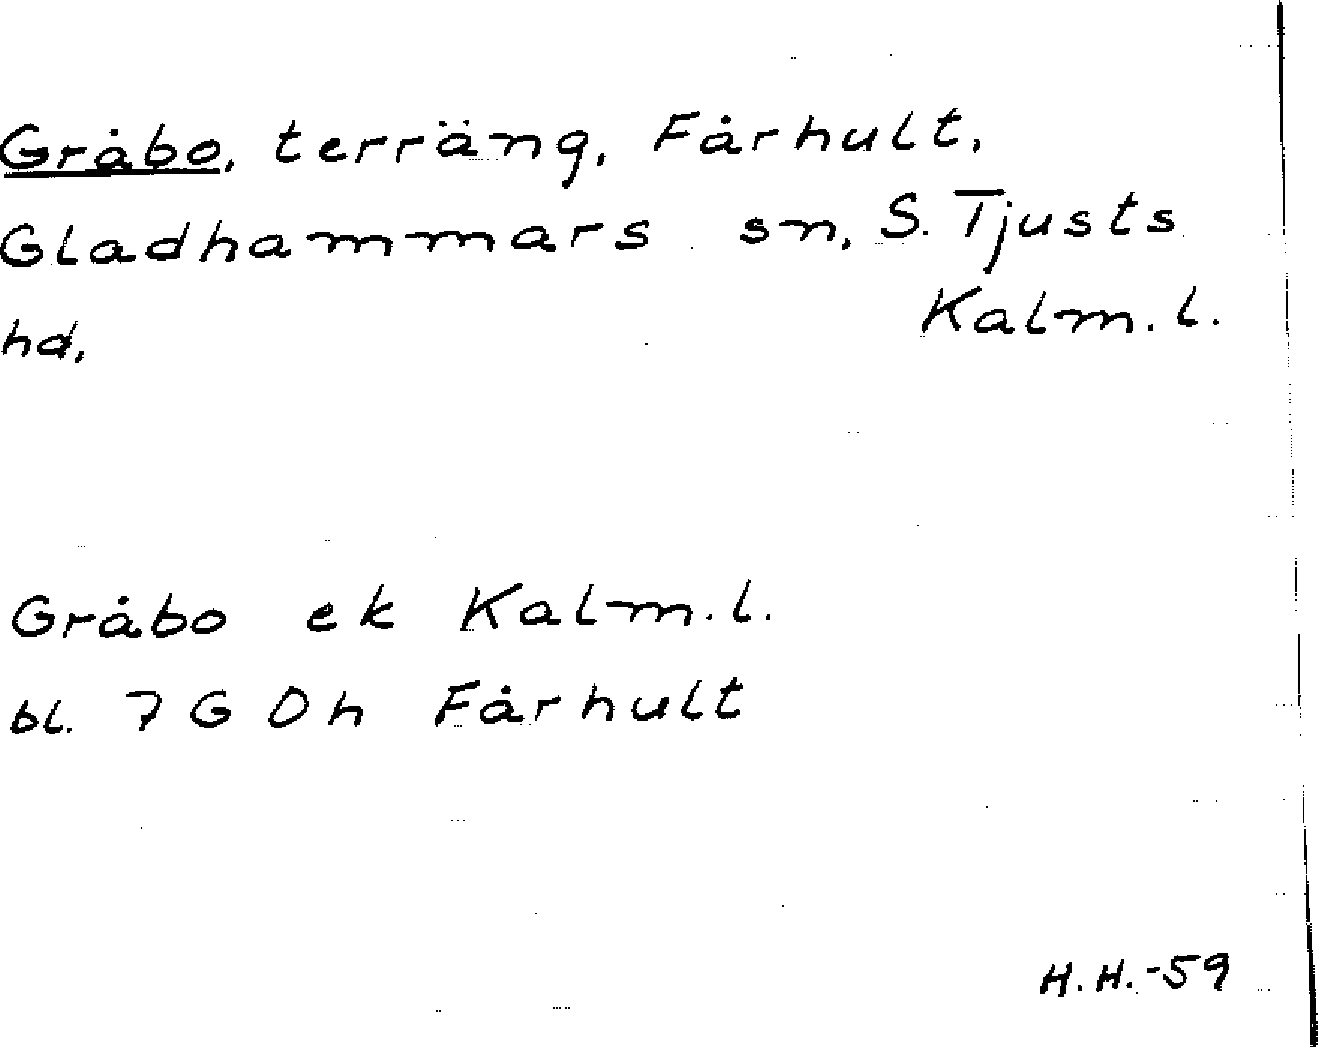 Gråbo, terräng, Fårhult,
Gladhammars sn, S. Tjusts
hd, Kalm. l.
Gråbo ek Kalm. l.
bl. 7 G 0 h Fårhult
H. H. -59